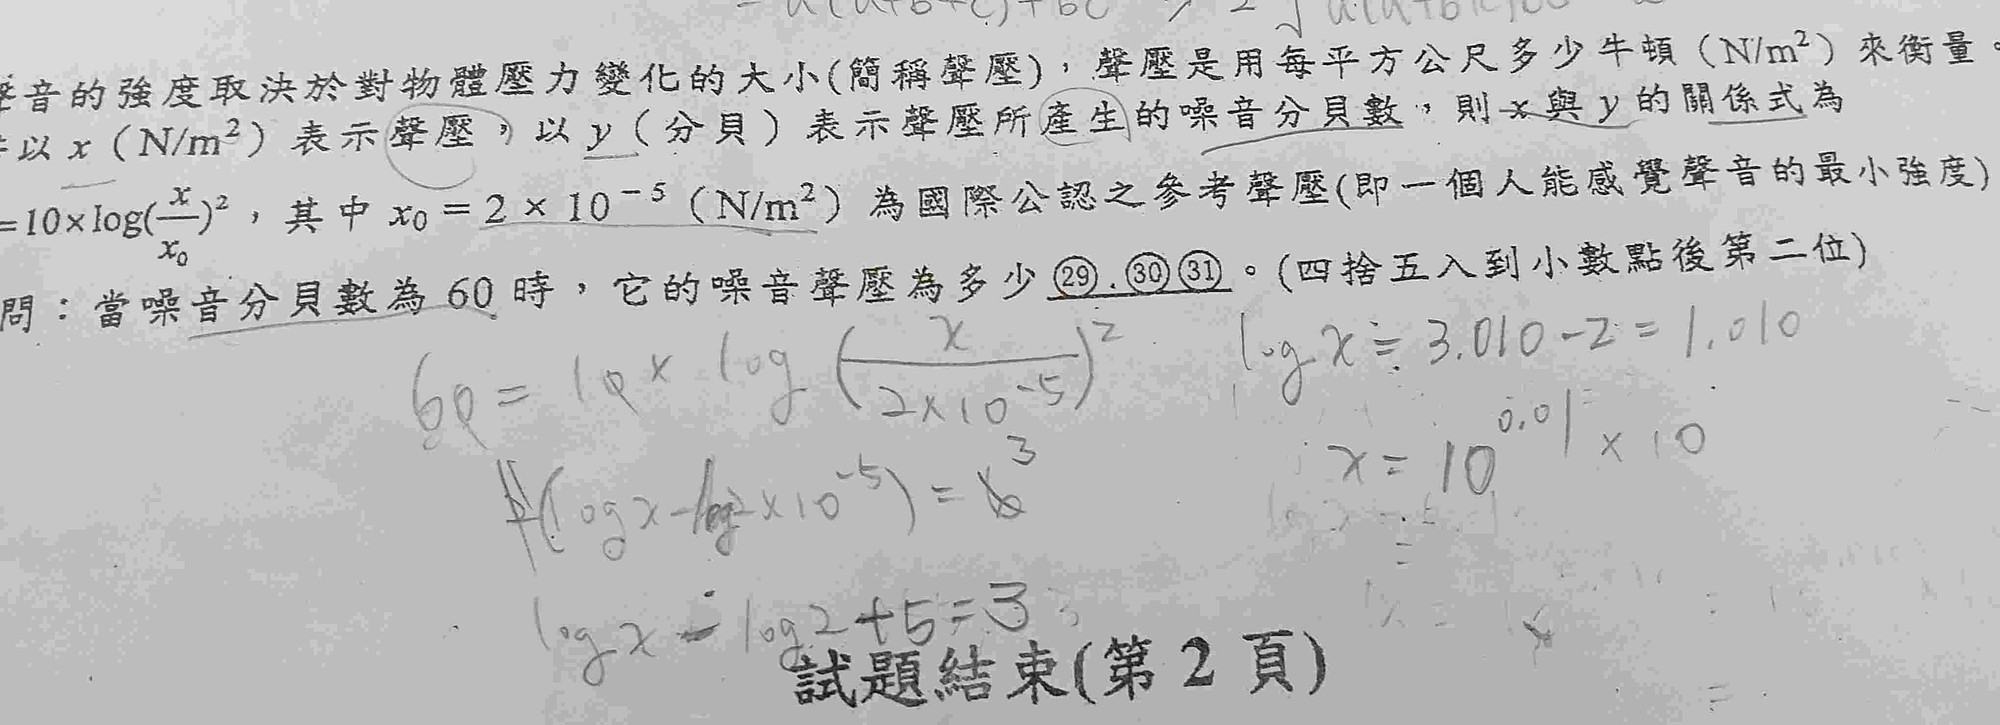 = a(a+b+c)+bc
音的強度取決於對物體壓力變化的大小(簡稱聲壓)，聲壓是用每平方公尺多少牛頓（N/m²）來衡量。
以 x（N/m²）表示聲壓，以 y（分貝）表示聲壓所產生的噪音分貝數，則 x 與 y 的關係式為
=10×log(x/x₀)²，其中 x₀ = 2 × 10⁻⁵（N/m²）為國際公認之參考聲壓(即一個人能感覺聲音的最小強度)
問：當噪音分貝數為 60 時，它的噪音聲壓為多少 ㉙.㉚㉛。(四捨五入到小數點後第二位)
60 = 10 × log (x/(2×10⁻⁵))²
(log x - log 2×10⁻⁵) = 3
log x - log 2 + 5 = 3
log x ≒ 3.010 - 2 = 1.010
x = 10^0.01 × 10
試題結束(第 2 頁)